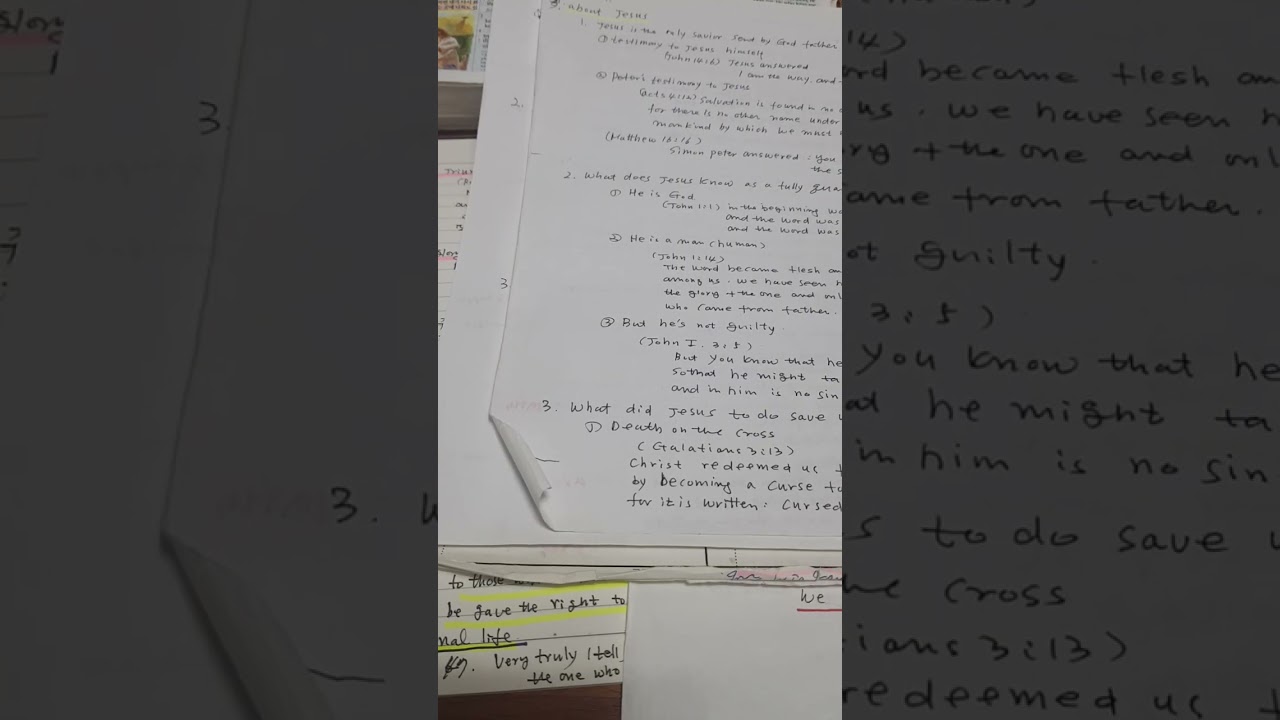 3. about Jesus
1. Jesus is the only savior sent by God father
① testimony to Jesus himself
(John 14:6) Jesus answered
I am the way and
② Peter's testimony to Jesus
(acts 4:12) Salvation is found in no
for there is no other name under
mankind by which we must
(Matthew 16:16)
Simon peter answered : you
the s
2. What does Jesus know as a fully
① He is God.
(John 1:1) in the beginning wa
and the word was
and the word was
② He is a man (human)
(John 1:14)
The word became flesh an
among us. we have seen h
the glory + the one and onl
who came from father.
③ But he's not guilty.
(John I. 3:5)
But you know that he
so that he might ta
and in him is no sin
3. What did Jesus to do save u
① Death on the cross
(Galations 3:13)
Christ redeemed us t
by becoming a curse fo
for it is written: Cursed
2.
3
to those
be gave the right to
nal life.
Very truly I tell
the one who
We
3.
3. W
14)
rd became flesh an
us. we have seen h
ory + the one and onl
ame from father.
ot guilty.
3:5)
you know that he
at he might ta
in him is no sin
s to do save u
he cross
ions 3:13)
redeemed us t